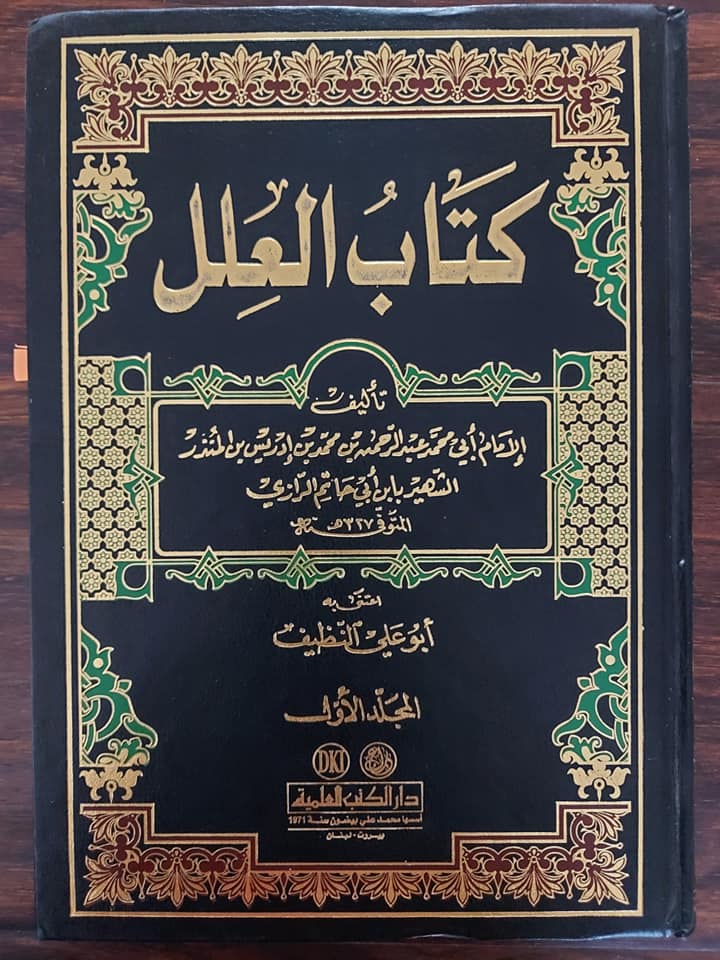 كتاب العلل
تأليف
الإمام أبي محمد عبد الرحمن بن محمد بن إدريس بن المنذر
الشهير بابن أبي حاتم الرازي
المتوفى ٣٢٧هـ سنة
اعتنى به
أبو علي النظيف
المجلد الأول
DKi
دار الكتب العلمية
أسسها محمد علي بيضون سنة 1971
بيروت - لبنان